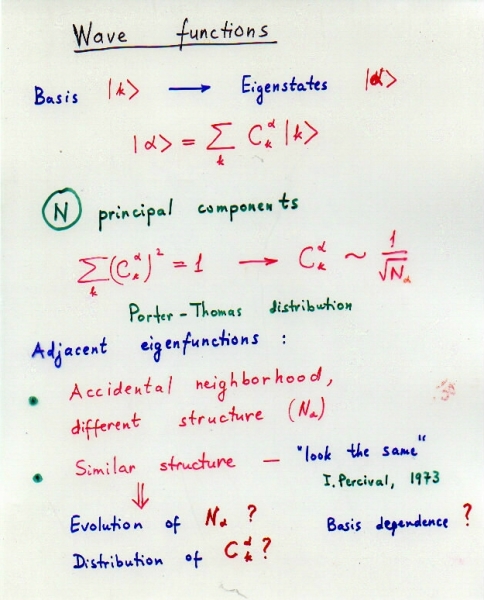 Wave functions
Basis |k> → Eigenstates |α>
|α> = Σ_k C_k^α |k>
N principal components
Σ_k (C_k^α)² = 1 → C_k^α ~ 1/√N_α
Porter-Thomas distribution
Adjacent eigenfunctions :
• Accidental neighborhood,
different structure (N_α)
• Similar structure — "look the same"
I. Percival, 1973
⇓
Evolution of N_α ? Basis dependence ?
Distribution of C_k^α ?